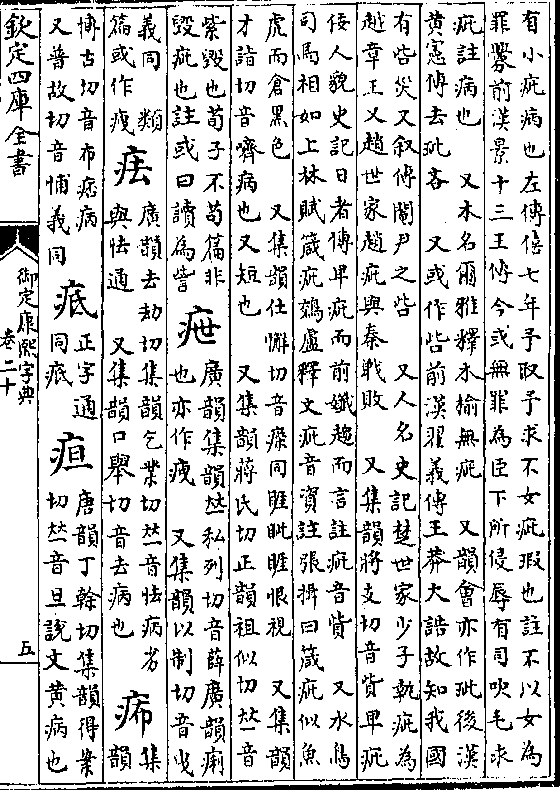 有小疵病也左傳僖七年予取予求不女疵瑕也註不以女為
罪釁前漢景十三王傳今或無罪為臣下所侵辱有司吹毛求
疵註病也 又木名爾雅釋木榆無疵 又韻會亦作玼後漢
黃憲傳去玼吝 又或作呰前漢翟義傳王莽大誥故知我國
有呰災又叙傳閹尹之呰 又人名史記楚世家少子執疵為
越章王又趙世家趙疵與秦戰敗 又集韻將支切音貲卑疵
佞人貌史記日者傳卑疵而前孅趨而言註疵音貲 又水鳥
司馬相如上林賦箴疵鵁盧釋文疵音資註張揖曰箴疵似魚
虎而倉黑色 又集韻仕懈切音瘵同睚眦睚恨視 又集韻
才詣切音嚌病也又短也 又集韻蔣氏切正韻祖似切𠀤音
紫毀也荀子不苟篇非
毀疵也註或曰讀為訾
疶
廣韻集韻𠀤私列切音薛廣韻痢
也亦作 又集韻以制切音曳
義同 類
篇或作
廣韻去劫切集韻乞業切𠀤音怯病劣
與怯通 又集韻口舉切音去病也
集
韻
博古切音布痞病
又普故切音怖義同
疷
正字通
同疧
疸
唐韻丁榦切集韻得案
切𠀤音旦說文黃病也
欽定四庫全書
御定康熙字典
卷二十
五